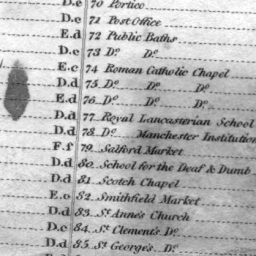 D.e 70 Portico
D.c 71 Post Office
E.d 72 Public Baths
D.c 73 Do. Do.
E.c 74 Roman Catholic Chapel
D.d 75 Do. Do. Do.
E.d 76 Do. Do. Do.
D.d 77 Royal Lancasterian School
D.d 78 Do. Manchester Institution
F.f 79 Salford Market
D.d 80 School for the Deaf & Dumb
D.d 81 Scotch Chapel
E.c 82 Smithfield Market
D.d 83 St. Anne's Church
D.c 84 St. Clement's Do.
D.d 85 St. George's Do.